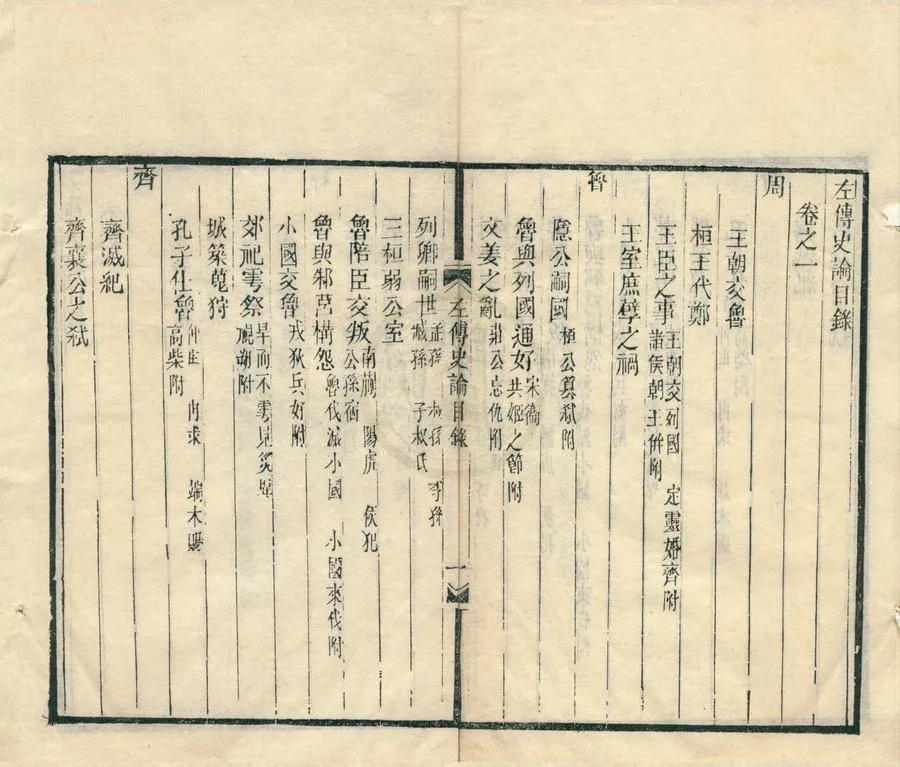 左傳史論目錄
卷之一
周
王朝交魯
桓王伐鄭
王臣之事 王朝交列國 定靈婚齊附
諸侯朝王倂附
王室庶孽之禍
魯
隱公嗣國 桓公篡弒附
魯與列國通好 宋衞
共姬之節附
文姜之亂 莊公忘仇附
左傳史論目錄 一
列卿嗣世 孟孫 叔孫 季孫
臧孫 子叔氏
三桓弱公室
魯陪臣交叛 南蒯 陽虎 侯犯
公孫宿
魯與邾莒構怨 魯伐滅小國 小國來伐附
小國交魯 戎狄兵好附
郊祀雩祭 旱而不雩見災異
視朔附
城築蒐狩
孔子仕魯 仲由 冉求 端木賜
高柴附
齊
齊滅紀
齊襄公之弒